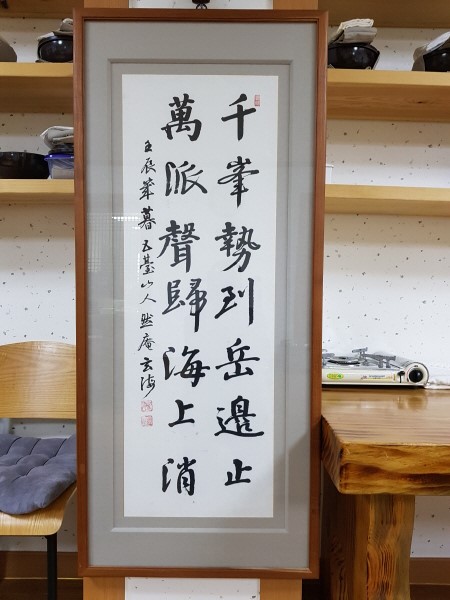 千峯勢到岳邊止
萬派聲歸海上消
壬辰歲暮五臺山人然庵玄海